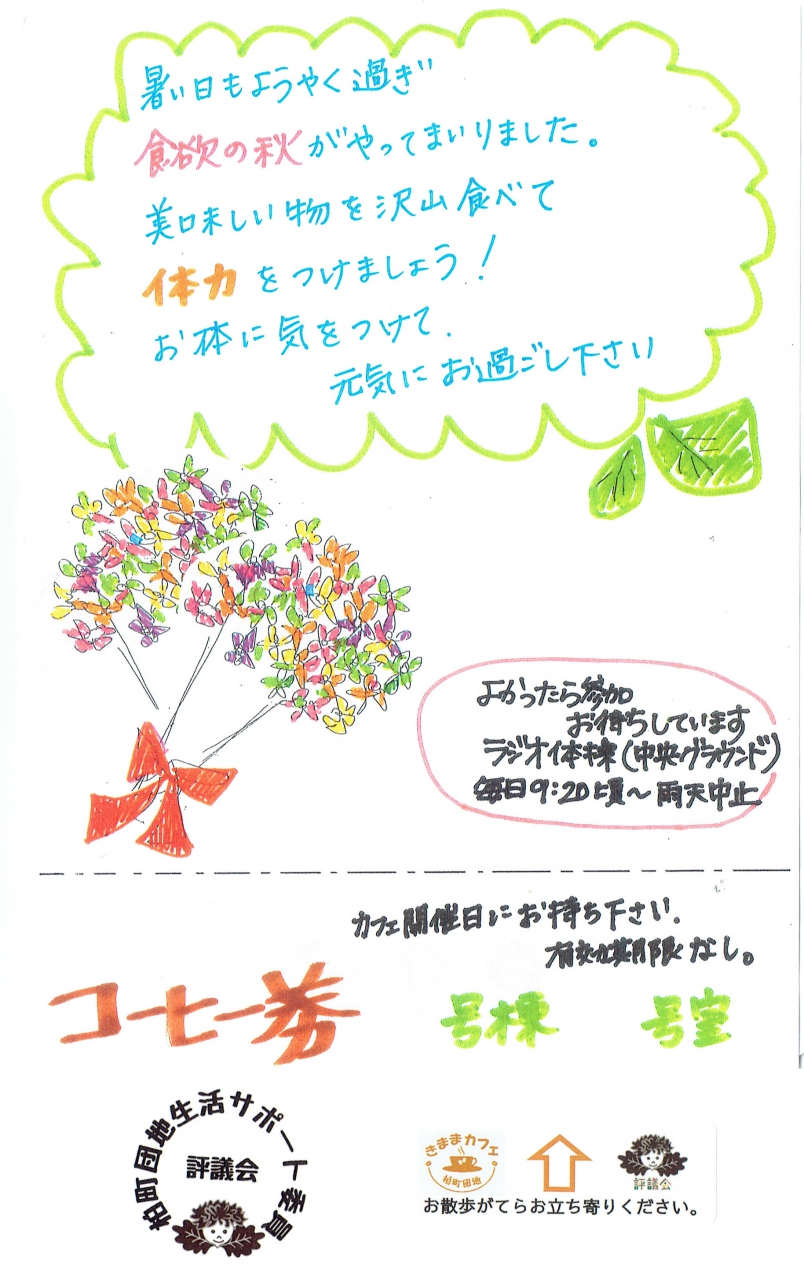 暑い日もようやく過ぎ
食欲の秋がやってまいりました。
美味しい物を沢山食べて
体力をつけましょう！
お体に気をつけて、
元気にお過ごし下さい
よかったら参加
お待ちしています
ラジオ体操(中央グラウンド)
毎日9:20頃～雨天中止
カフェ開催日にお持ち下さい。
有効期限なし。
コーヒー券 号棟 号室
柏町団地生活サポート委員
評議会
きままカフェ
柏町団地
評議会
お散歩がてらお立ち寄りください。